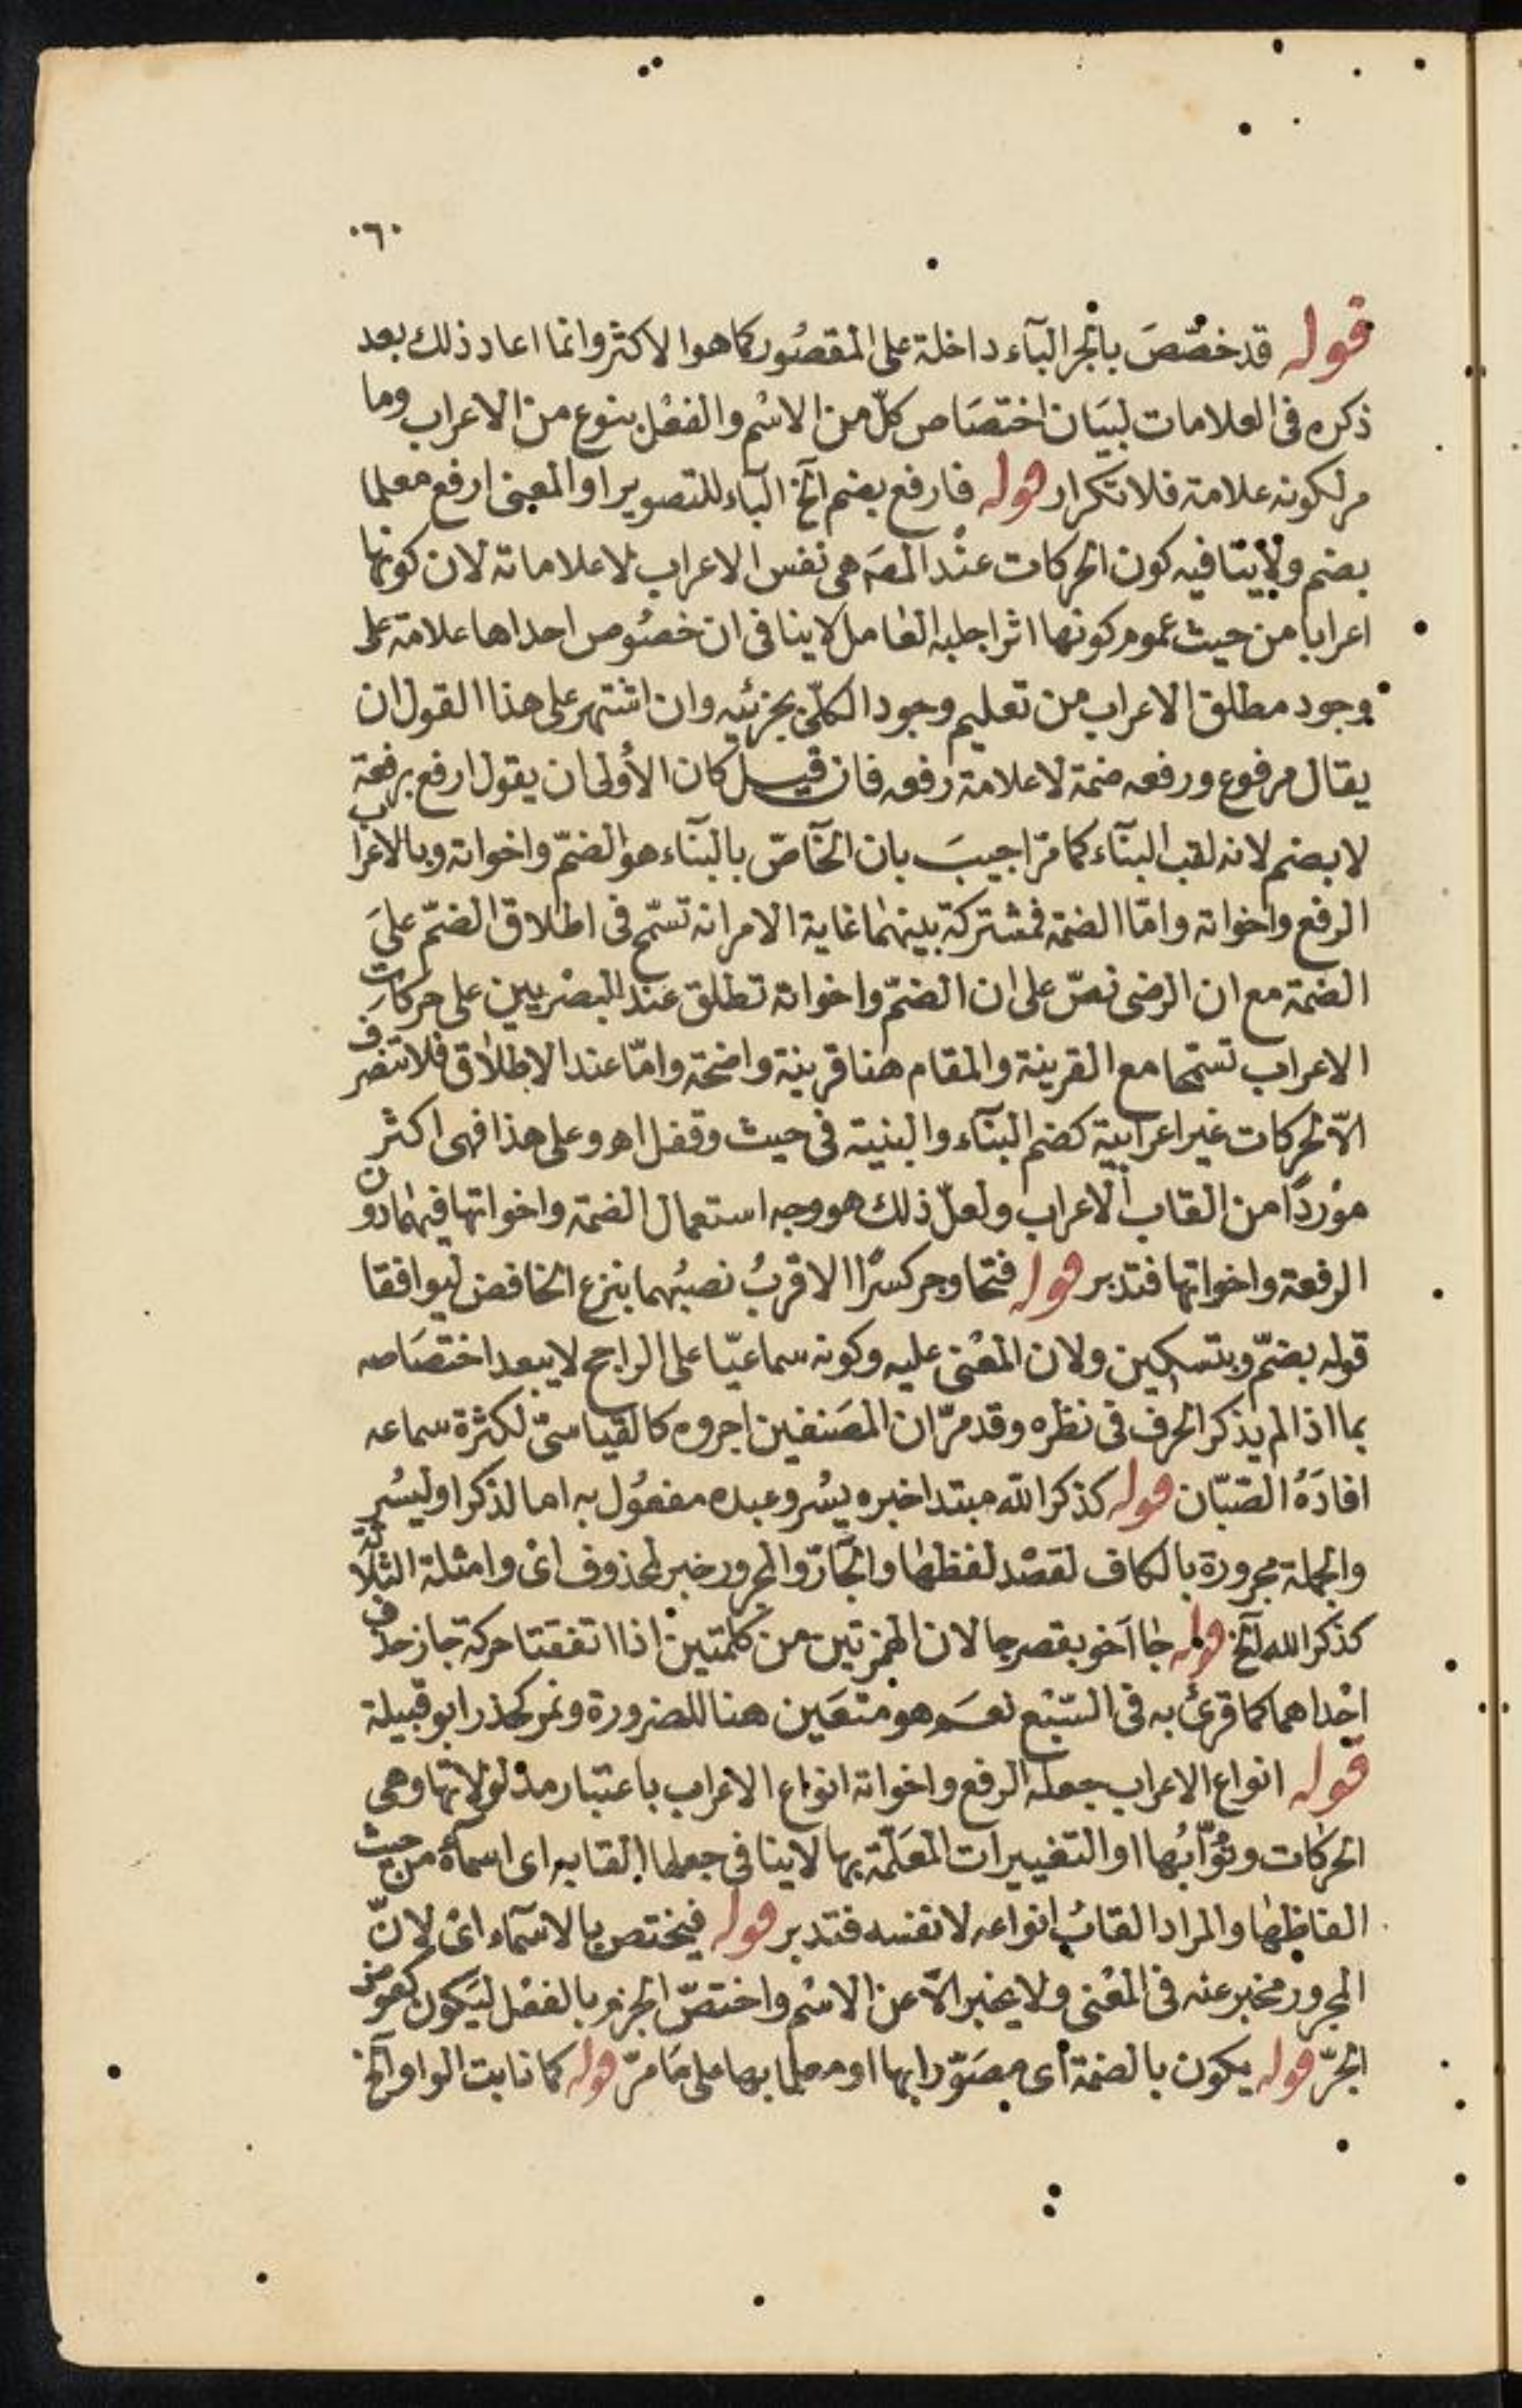 ٠٦٠
قوله قد خصّصَ بالجر البآء داخلة على المقصُور كما هو الاكثر وانما اعاد ذلك بعد
ذكره فى العلامات لبيَان اختصَاص كلّ من الاسْم والفعْل بنوع من الاعراب وما
مر لكونه علامة فلا تكرار قوله فارفع بضم آلخ البآء للتصوير او المعنى ارفع معلما
بضم ولا ينافيه كون الحركات عنْد المصَ هى نفس الاعراب لا علاماته لان كونها
اعرابا من حيث عموم كونها اثرا جلبه العامل لا ينافى ان خصُوص احداها علامة على
وجود مطلق الاعراب من تعليم وجود الكلّى بجزئيه وان اشتهر على هذا القول ان
يقال مرفوع ورفعه ضمة لا علامة رفعه فان قيل كان الأولى ان يقول ارفع برفعة
لا بضم لانه لقب البنآء كما مرّ اجيبَ بان الخآصّ بالبنآء هو الضمّ واخواته وبالاعراب
الرفع واخواته وامّا الضمة فمشتركة بينهما غاية الامر انه تسمّح فى اطلاق الضمّ علىَ
الضمة مع ان الرضى نصّ على ان الضمّ واخواته تطلق عنْد البصْريين على حركات
الاعراب تسمحا مع القرينة والمقام هنا قرينة واضحة وامّا عند الاطلاق فلا تنصرف
الاّ لحركات غير اعرابية كضم البنآء والبنية فى حيث وقفل اهـ وعلى هذا فهى اكثر
موْردًا من القاب الاعراب ولعلّ ذلك هو وجه استعمال الضمة واخواتها فيهما دون
الرفعة واخواتها فتدبر قوله فتحا وجر كسرًا الاقربُ نصبُهما بنزع الخافض ليوافقا
قوله بضمّ وبتسكين ولان المعْنى عليه وكونه سماعيّا على الراجح لا يبعد اختصَاصه
بما اذا لم يذكر الحرف فى نظره وقد مرّ ان المصَنفين اجروه كالقياسىّ لكثرة سماعه
افادَهُ الصّبّان قوله كذكر الله مبتدا خبره يسُر وعبده مفعُول به اما لذكر او ليسُر
والجملة مجرورة بالكاف لقصْد لفظها والجآرّ والمجرور خبر لمحذوف اىْ وامثلة الثلاثة
كذكر الله آلخ قوله جا اخو بقصر جا لان الهمزتين من كلمتين اذا اتفقتا حركة جاز حذف
احْداهما كما قرئ به فى السّبْع نعَم هو متعَين هنا للضرورة ونمر كحذر ابو قبيلة
قوله انواع الاعراب جعله الرفع واخواته انواع الاعراب باعتبار مدْلولاتها وهى
الحركات ونُوّابُها او التغييرات المعَلّمة بها لا ينافى جعلها القابه اى اسمآءه من حيث
الفاظها والمراد القابُ انواعه لا نفسه فتدبر قوله فيختص بالاسمآء اىْ لانّ
المجرور مخبر عنه فى المعْنى ولا يخبر الاّ عن الاسْم واختصّ الجزم بالفعْل ليَكون كعوض
الجرّ قوله يكون بالضمة اى مصَوّرا بها او معلما بها على مَا مرّ قوله كما نابت الواو آلخ